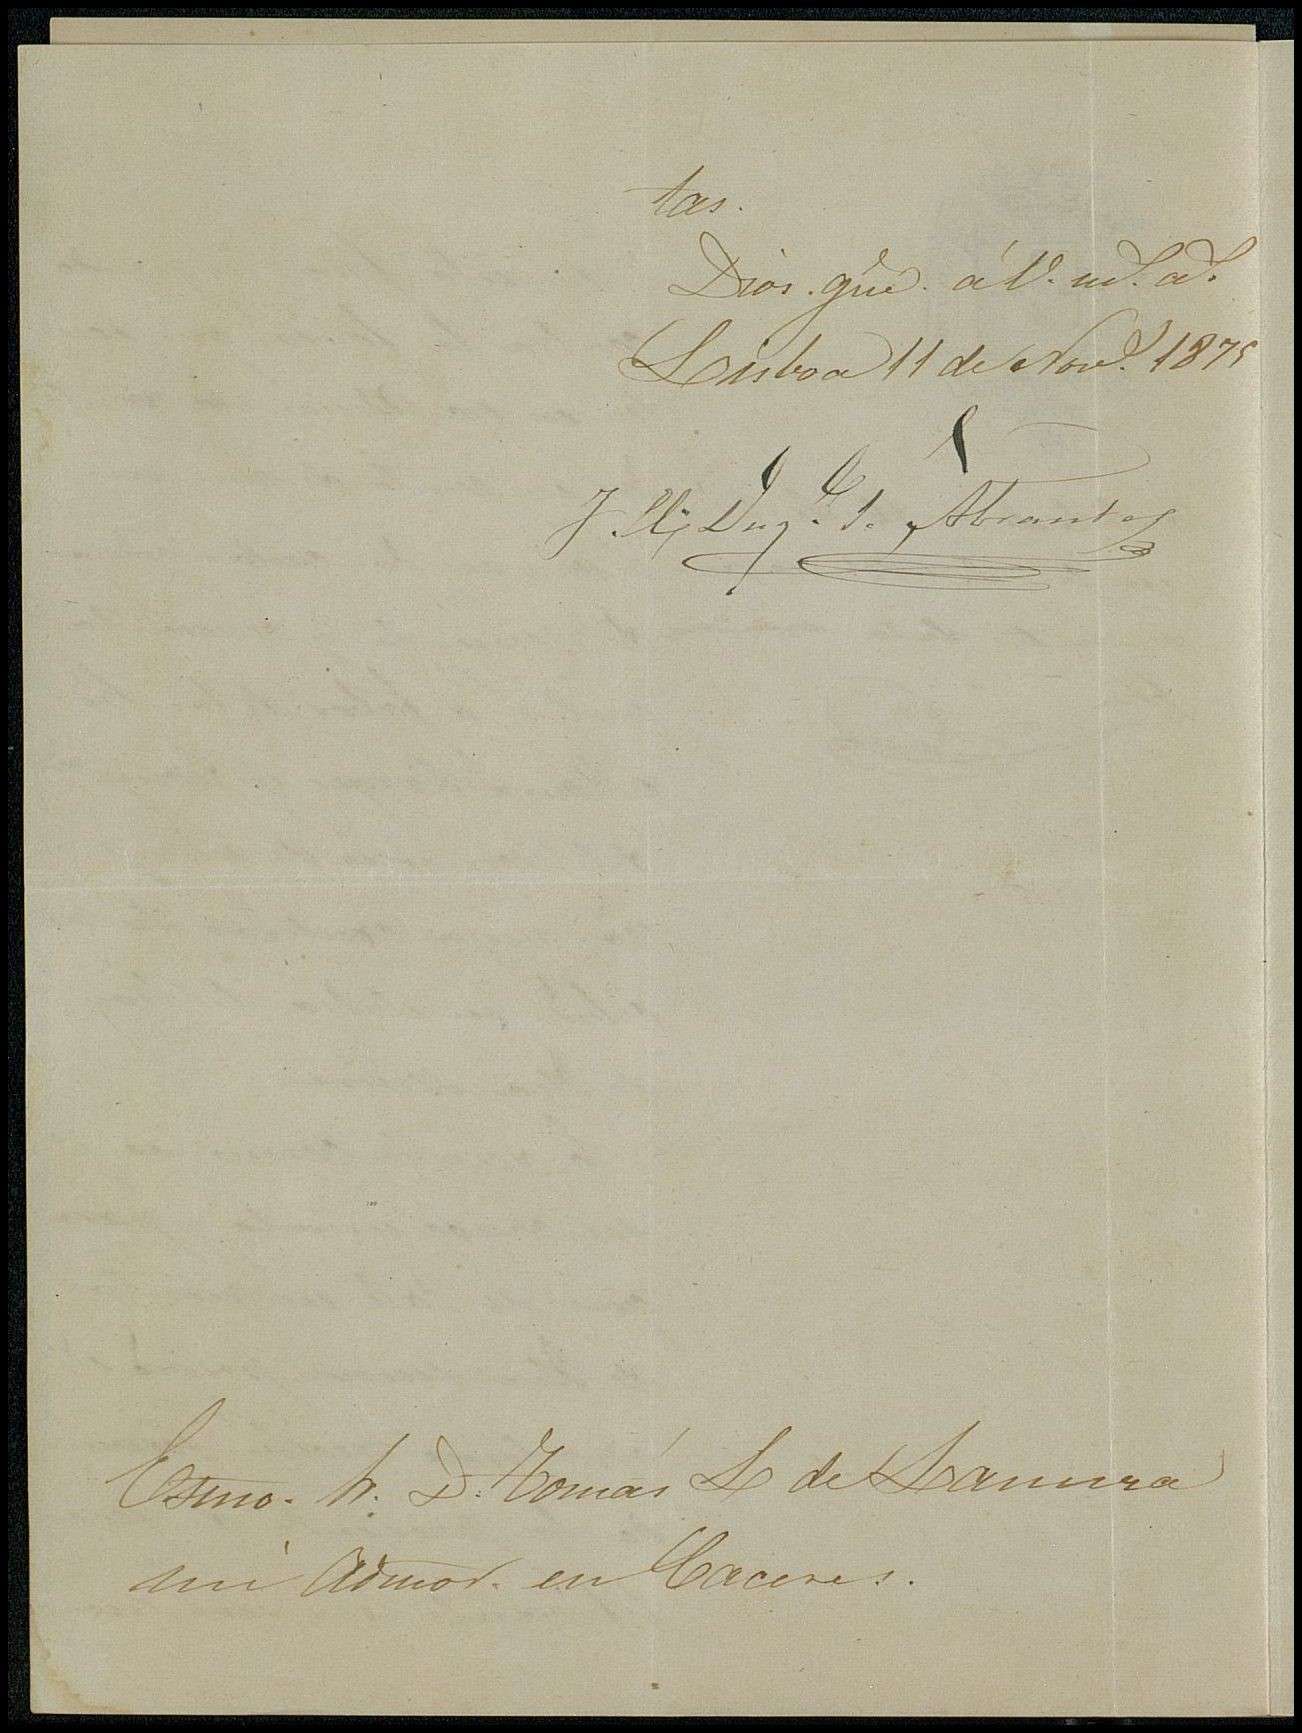 tas.
Dios gue. á V. md. ad.
Lisboa 11 de Nov. 1875
Duq. d. Abrantes
Esmo. Sr. D. Tomás L de Lamura
mi Admor. en Caceres.